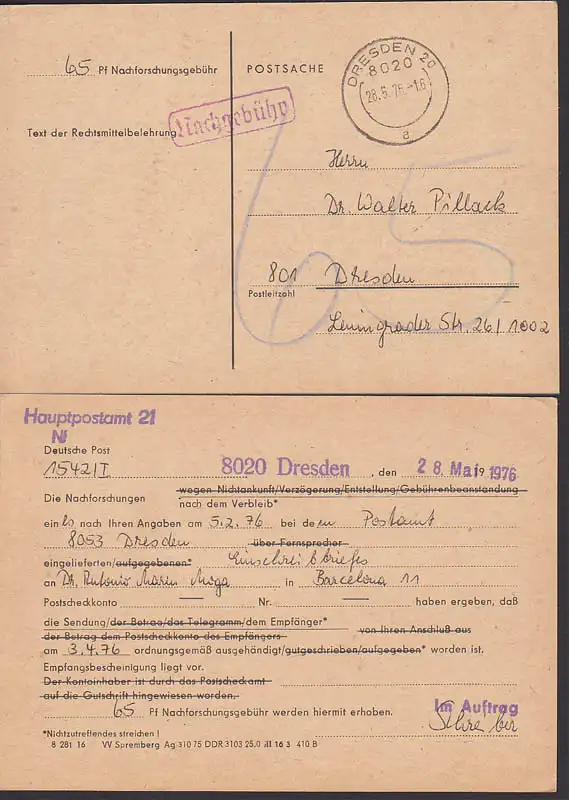 65 Pf Nachforschungsgebühr
POSTSACHE
DRESDEN 20
8020
28.5.76.-16
a
Nachgebühr
Text der Rechtsmittelbelehrung
65
Herrn
Dr. Walter Pillack
801 Dresden
Postleitzahl
Leningrader Str. 26/1002
Hauptpostamt 21
Deutsche Post
15421/I
8020 Dresden, den 28. Mai 19 1976
Die Nachforschungen wegen Nichtankunft/Verzögerung/Entstellung/Gebührenbeanstandung
nach dem Verbleib*
ein es nach Ihren Angaben am 5.2.76 bei dem Postamt
8053 Dresden über Fernsprecher
eingelieferten/aufgegebenen* Einschreibbriefes
an Dr. Antonio Marin in Barcelona 11
Postscheckkonto — Nr. — haben ergeben, daß
die Sendung/der Betrag/das Telegramm/dem Empfänger* von Ihren Anschluß aus
der Betrag dem Postscheckkonto des Empfängers
am 3.4.76 ordnungsgemäß ausgehändigt/gutgeschrieben/aufgegeben* worden ist.
Empfangsbescheinigung liegt vor.
Der Kontoinhaber ist durch das Postscheckamt
auf die Gutschrift hingewiesen worden.
65 Pf Nachforschungsgebühr werden hiermit erhoben.
Im Auftrag
Schreiber
*Nichtzutreffendes streichen!
8 281 16 VV Spremberg Ag 310 75 DDR 3103 25.0 III 16 3 410 B